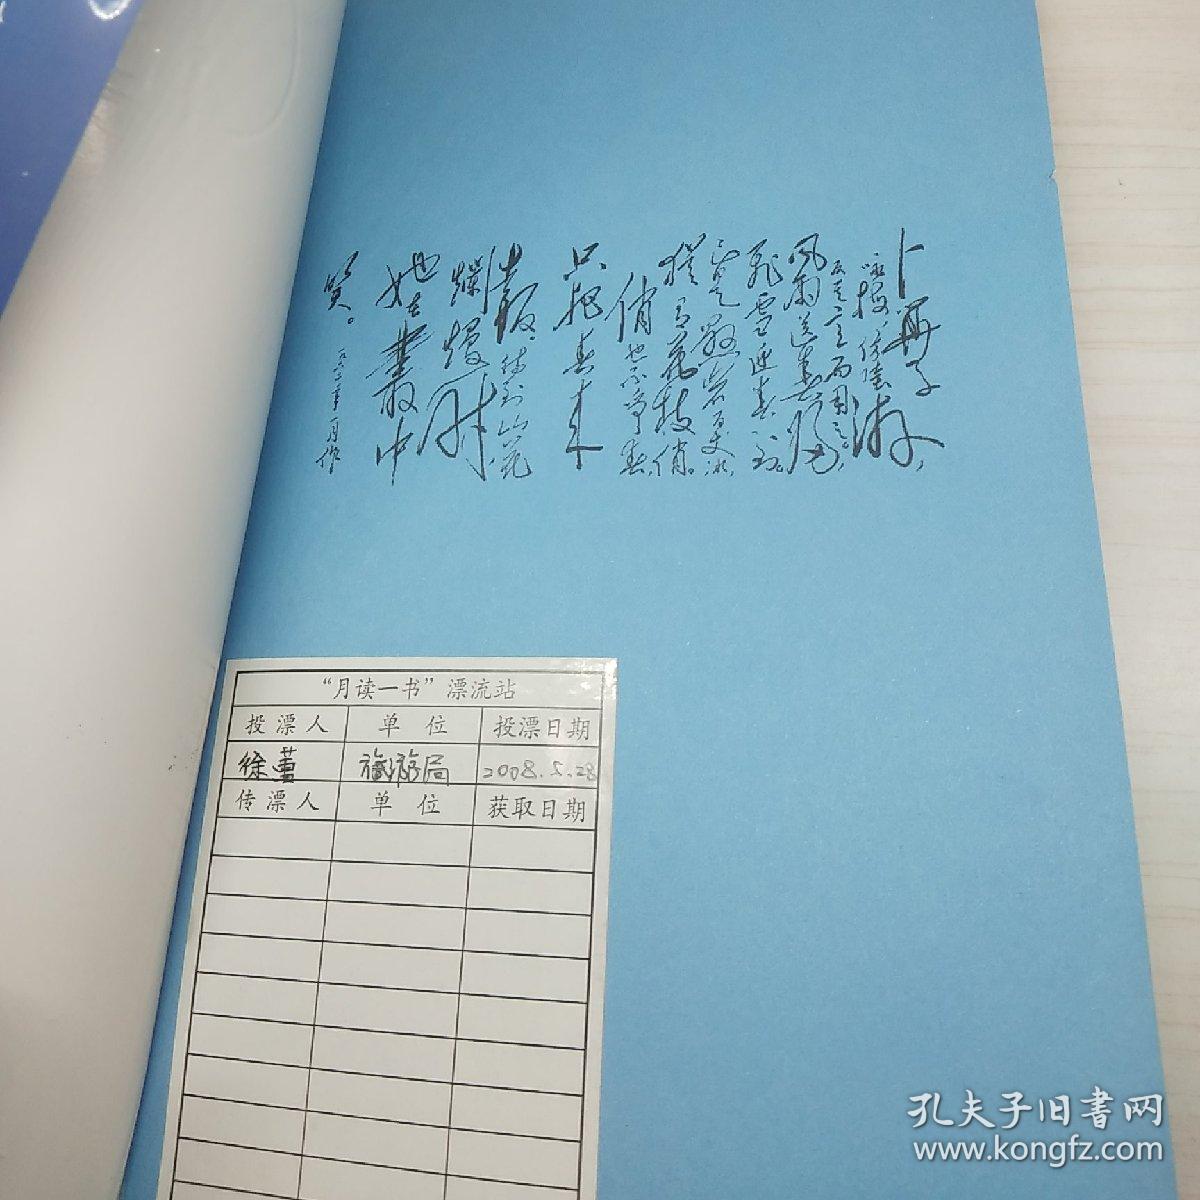 卜算子
咏梅,
游,
反其意而用之。
风雨送春归,
飞雪迎春到。
已是悬崖百丈冰,
犹有花枝俏。
俏也不争春,
只把春来
报,待到山花
烂熳时
她在丛中
笑。
月作
“月读一书”漂流站
投漂人 单位 投漂日期
徐 旅游局 2008.5.28
传漂人 单位 获取日期
孔夫子旧书网
www.kongfz.com